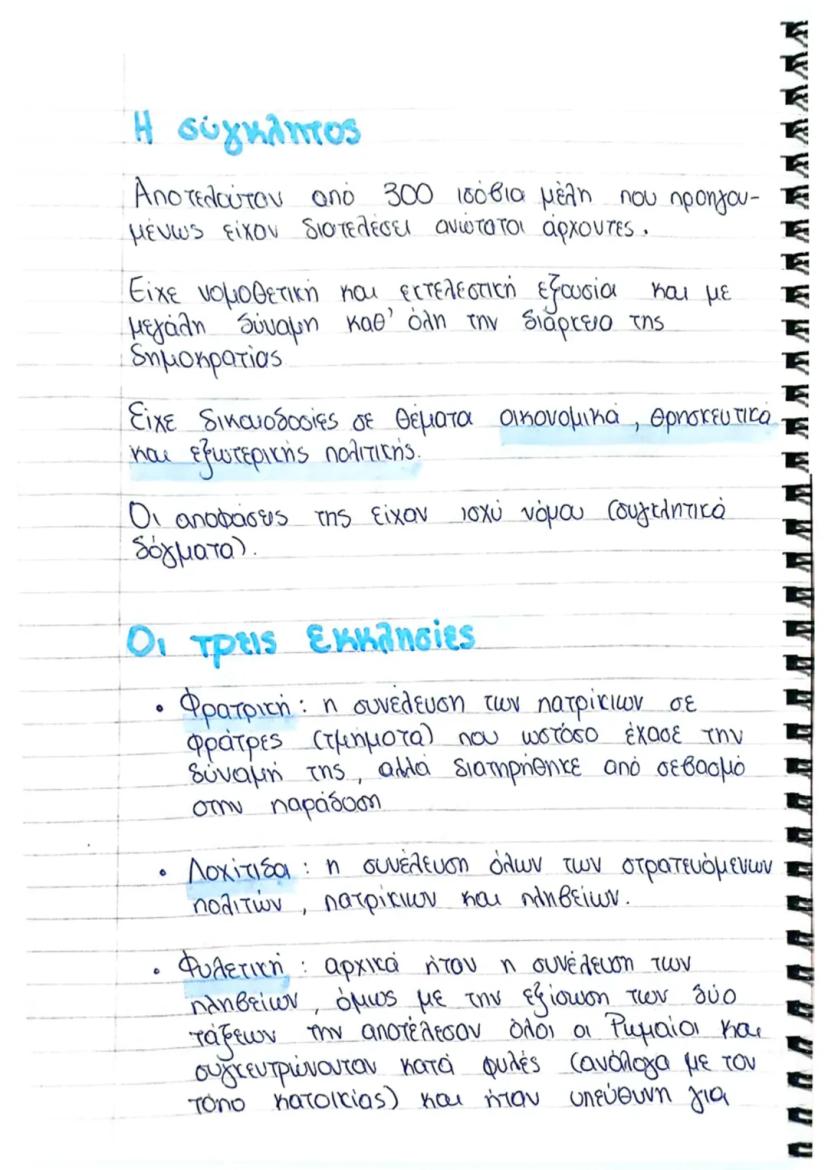 Η σύγκλητος
Αποτελούταν από 300 ισόβια μέλη που προηγου-
μένως είχαν διατελέσει ανώτατοι άρχοντες.
Είχε νομοθετική και εκτελεστική εξουσία και με
μεγάλη δύναμη καθ' όλη την διάρκεια της
δημοκρατίας
Είχε δικαιοδοσίες σε θέματα οικονομικά, θρησκευτικά
και εξωτερικής πολιτικής.
Οι αποφάσεις της είχαν ισχύ νόμου (συγκλητικά
δόγματα).
Οι τρεις εκκλησίες
• Φρατρική: η συνέλευση των πατρίκιων σε
φράτρες (τμήματα) που ωστόσο έχασε την
δύναμή της, αλλά διατηρήθηκε από σεβασμό
στην παράδοση
• Λοχίτιδα: η συνέλευση όλων των στρατευόμενων
πολιτών, πατρίκιων και πληβείων.
• Φυλετική: αρχικά ήταν η συνέλευση των
πληβείων, όμως με την εξίσωση των δύο
τάξεων την αποτέλεσαν όλοι οι Ρωμαίοι και
συγκεντρώνονταν κατά φυλές (ανάλογα με τον
τόπο κατοικίας) και ήταν υπεύθυνη για